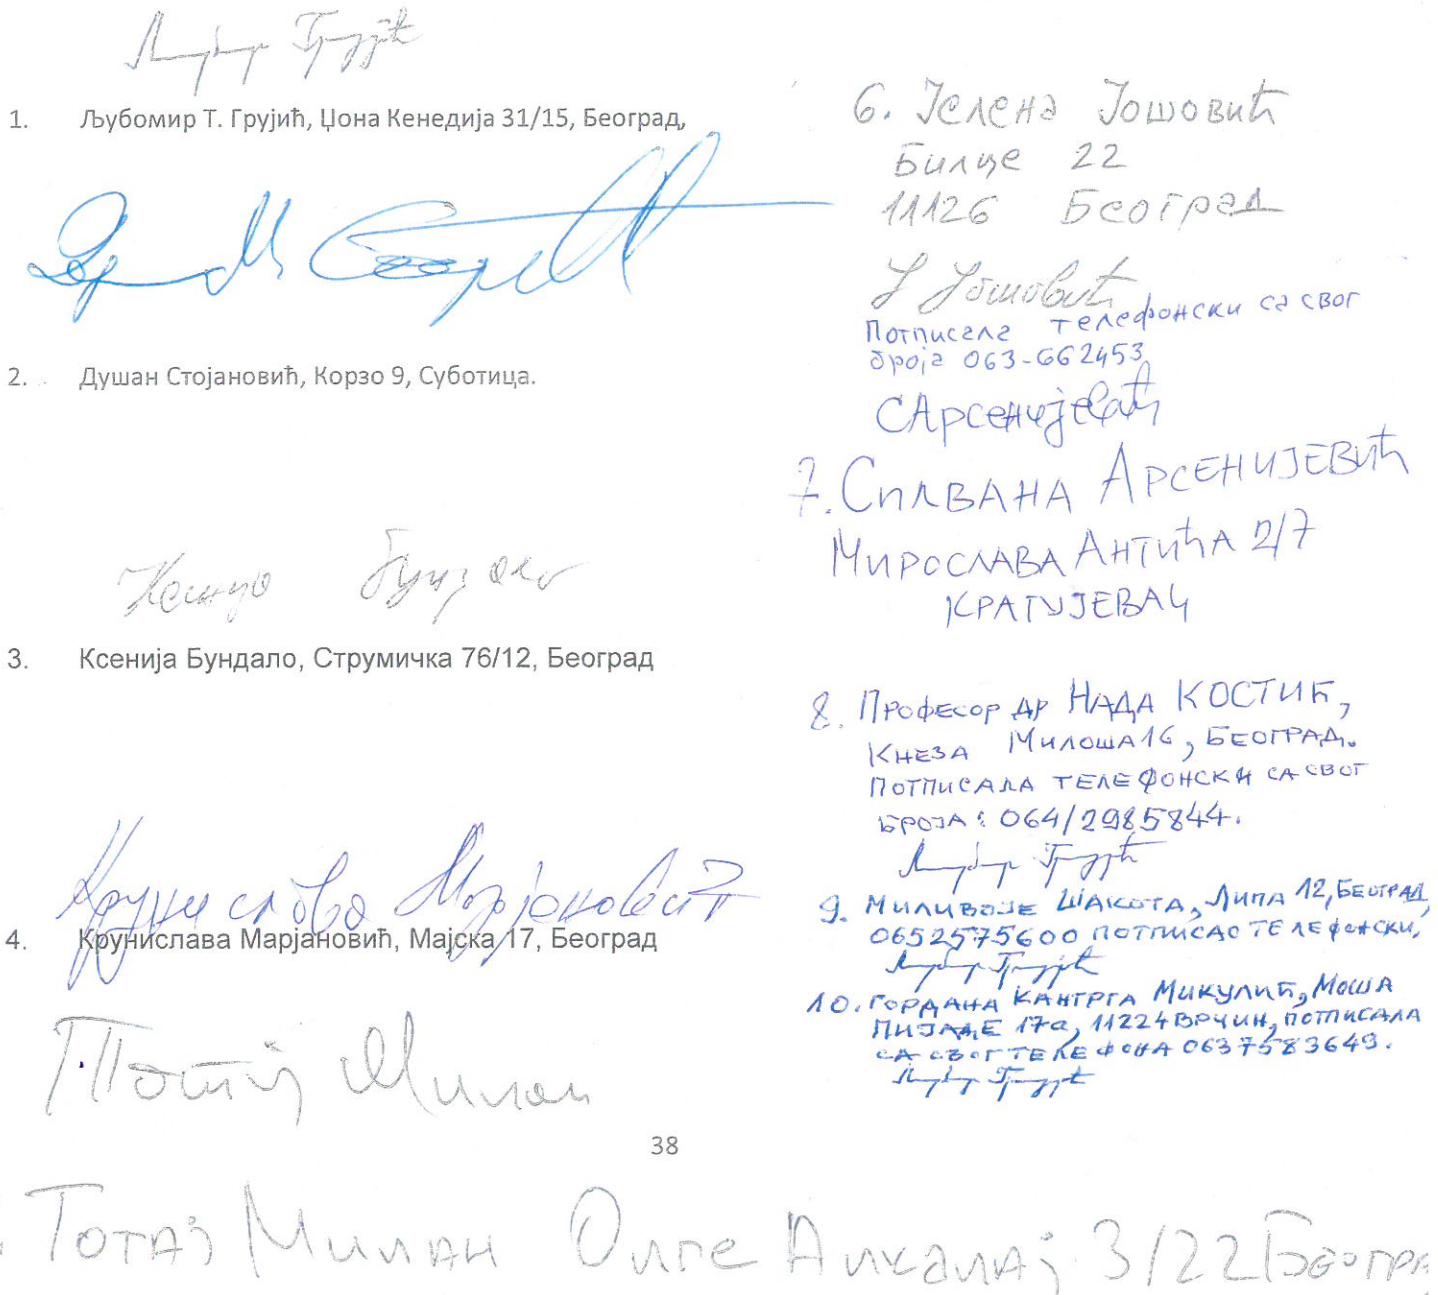 Љубомир Грујић
1. Љубомир Т. Грујић, Џона Кенедија 31/15, Београд,
2. Душан Стојановић, Корзо 9, Суботица.
Ксенија Бундало
3. Ксенија Бундало, Струмичка 76/12, Београд
Крунислава Марјановић
4. Крунислава Марјановић, Мајска 17, Београд
Тотај Милан
6. Јелена Јошовић
Билце 22
11126 Београд
Ј Јошовић
Потписала телефонски са свог
броја 063-662453
САрсенијевић
7. СПЛВАНА АРСЕНИЈЕВИЋ
МИРОСЛАВА АНТИЋА 2/7
КРАГУЈЕВАЦ
8. ПРОФЕСОР ДР НАДА КОСТИЋ,
КНЕЗА МИЛОША 16, БЕОГРАД.
ПОТПИСАЛА ТЕЛЕФОНСКИ СА СВОГ
БРОЈА: 064/2985844.
Љубомир Грујић
9. МИЛИВОЈЕ ШАКОТА, ЛИПА 12, БЕОГРАД,
0652575600 ПОТПИСАО ТЕЛЕФОНСКИ,
Љубомир Грујић
10. ГОРДАНА КАНТРГА МИКУЛИЋ, МОША
ПИЈАДЕ 17а, 11224 ВРЧИН, ПОТПИСАЛА
СА СВОГ ТЕЛЕФОНА 0637583649.
Љубомир Грујић
38
ТОТАЈ МИЛАН ОЛГЕ АЛКАЛАЈ 3/22 БЕОГРА